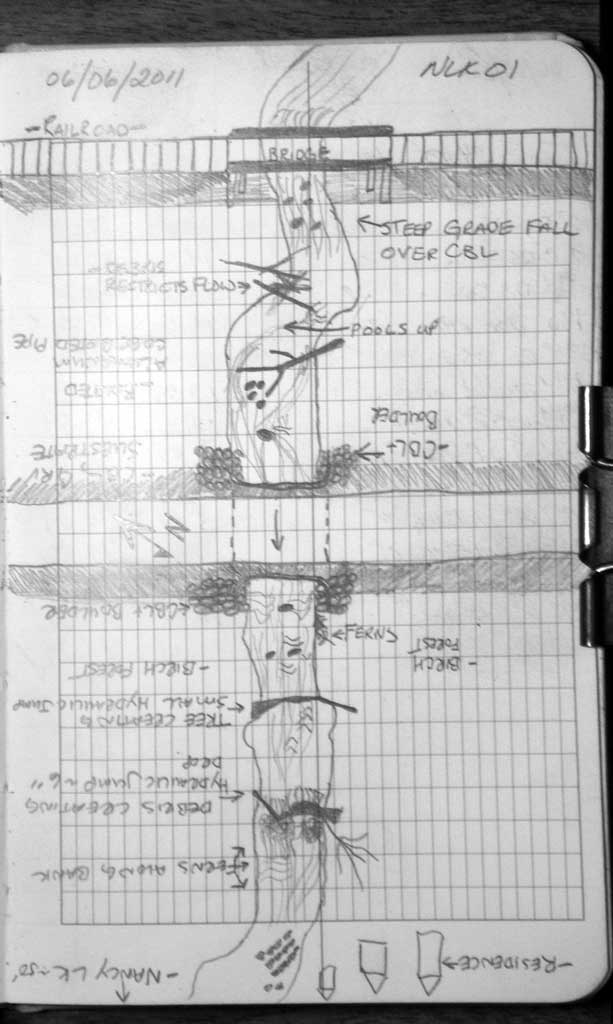 06/06/2011
NLK01
-RAILROAD-
BRIDGE
←STEEP GRADE FALL
OVER CBL
-DEBRIS
RESTRICTS FLOW→
←POOLS UP
CORRUGATED PIPE
ALUMINUM
-CBL+
BOULDER
SUBSTRATE
N
←CBL+ BOULDER
←FERNS
-BIRCH
FOREST
-BIRCH FOREST
TREE CREATING
SMALL HYDRAULIC JUMP
DEBRIS CREATING
HYDRAULIC JUMP ~6"
DROP
FERNS ALONG BANK
-NANCY LK ~50'
-RESIDENCE→